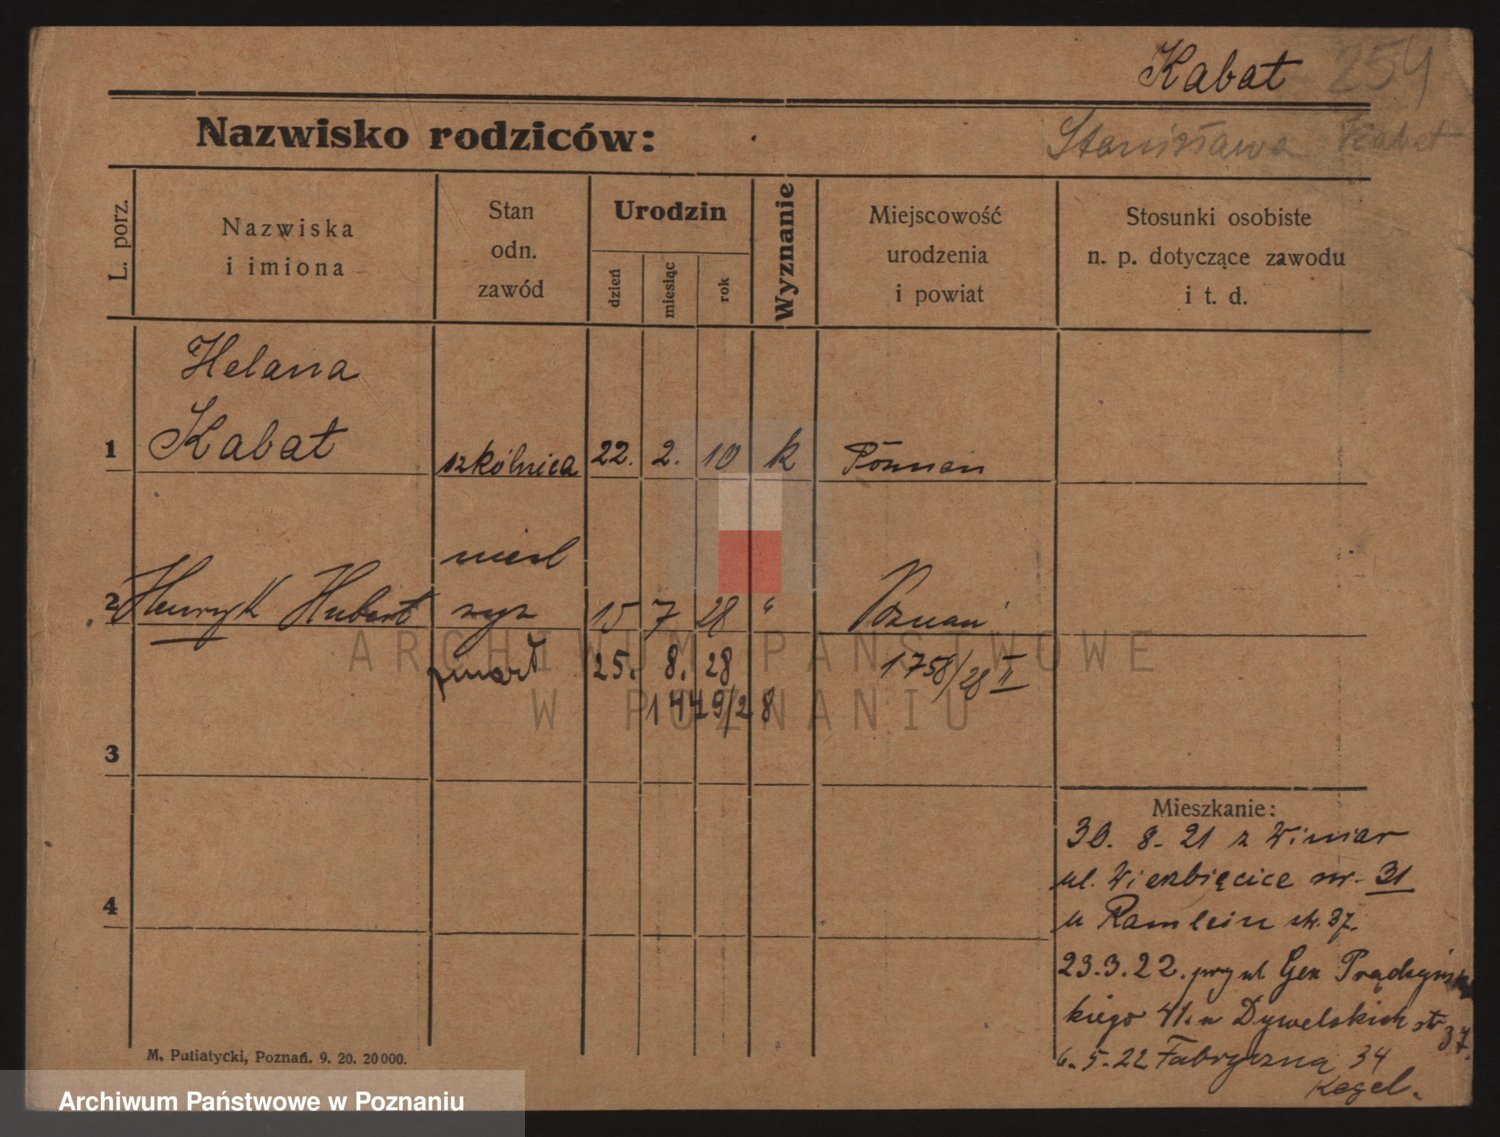 Kabat 254
Nazwisko rodziców:
Stanisława Kabat
L. porz.
Nazwiska
i imiona
Stan
odn.
zawód
Urodzin
dzień
miesiąc
rok
Wyznanie
Miejscowość
urodzenia
i powiat
Stosunki osobiste
n. p. dotyczące zawodu
i t. d.
Helana
1 Kabat szkólnica 22. 2. 10 k Poznań
2 Henryk Hubert 15 7 28 " Poznań
zmarł 25. 8. 28 1758/28 II
1449/28
ARCHIWUM PAŃSTWOWE
W POZNANIU
3
4
Mieszkanie:
30. 8. 21 z Winiar
ul. Wierzbięcice nr. 31
u Ramlein str. 37.
23.3.22. przy ul Gen Prądzyńs
kiego 41. u Dywelskich str 37.
6. 5. 22 Fabryczna 34
Kegel.
M. Putiatycki, Poznań. 9. 20. 20000.
Archiwum Państwowe w Poznaniu